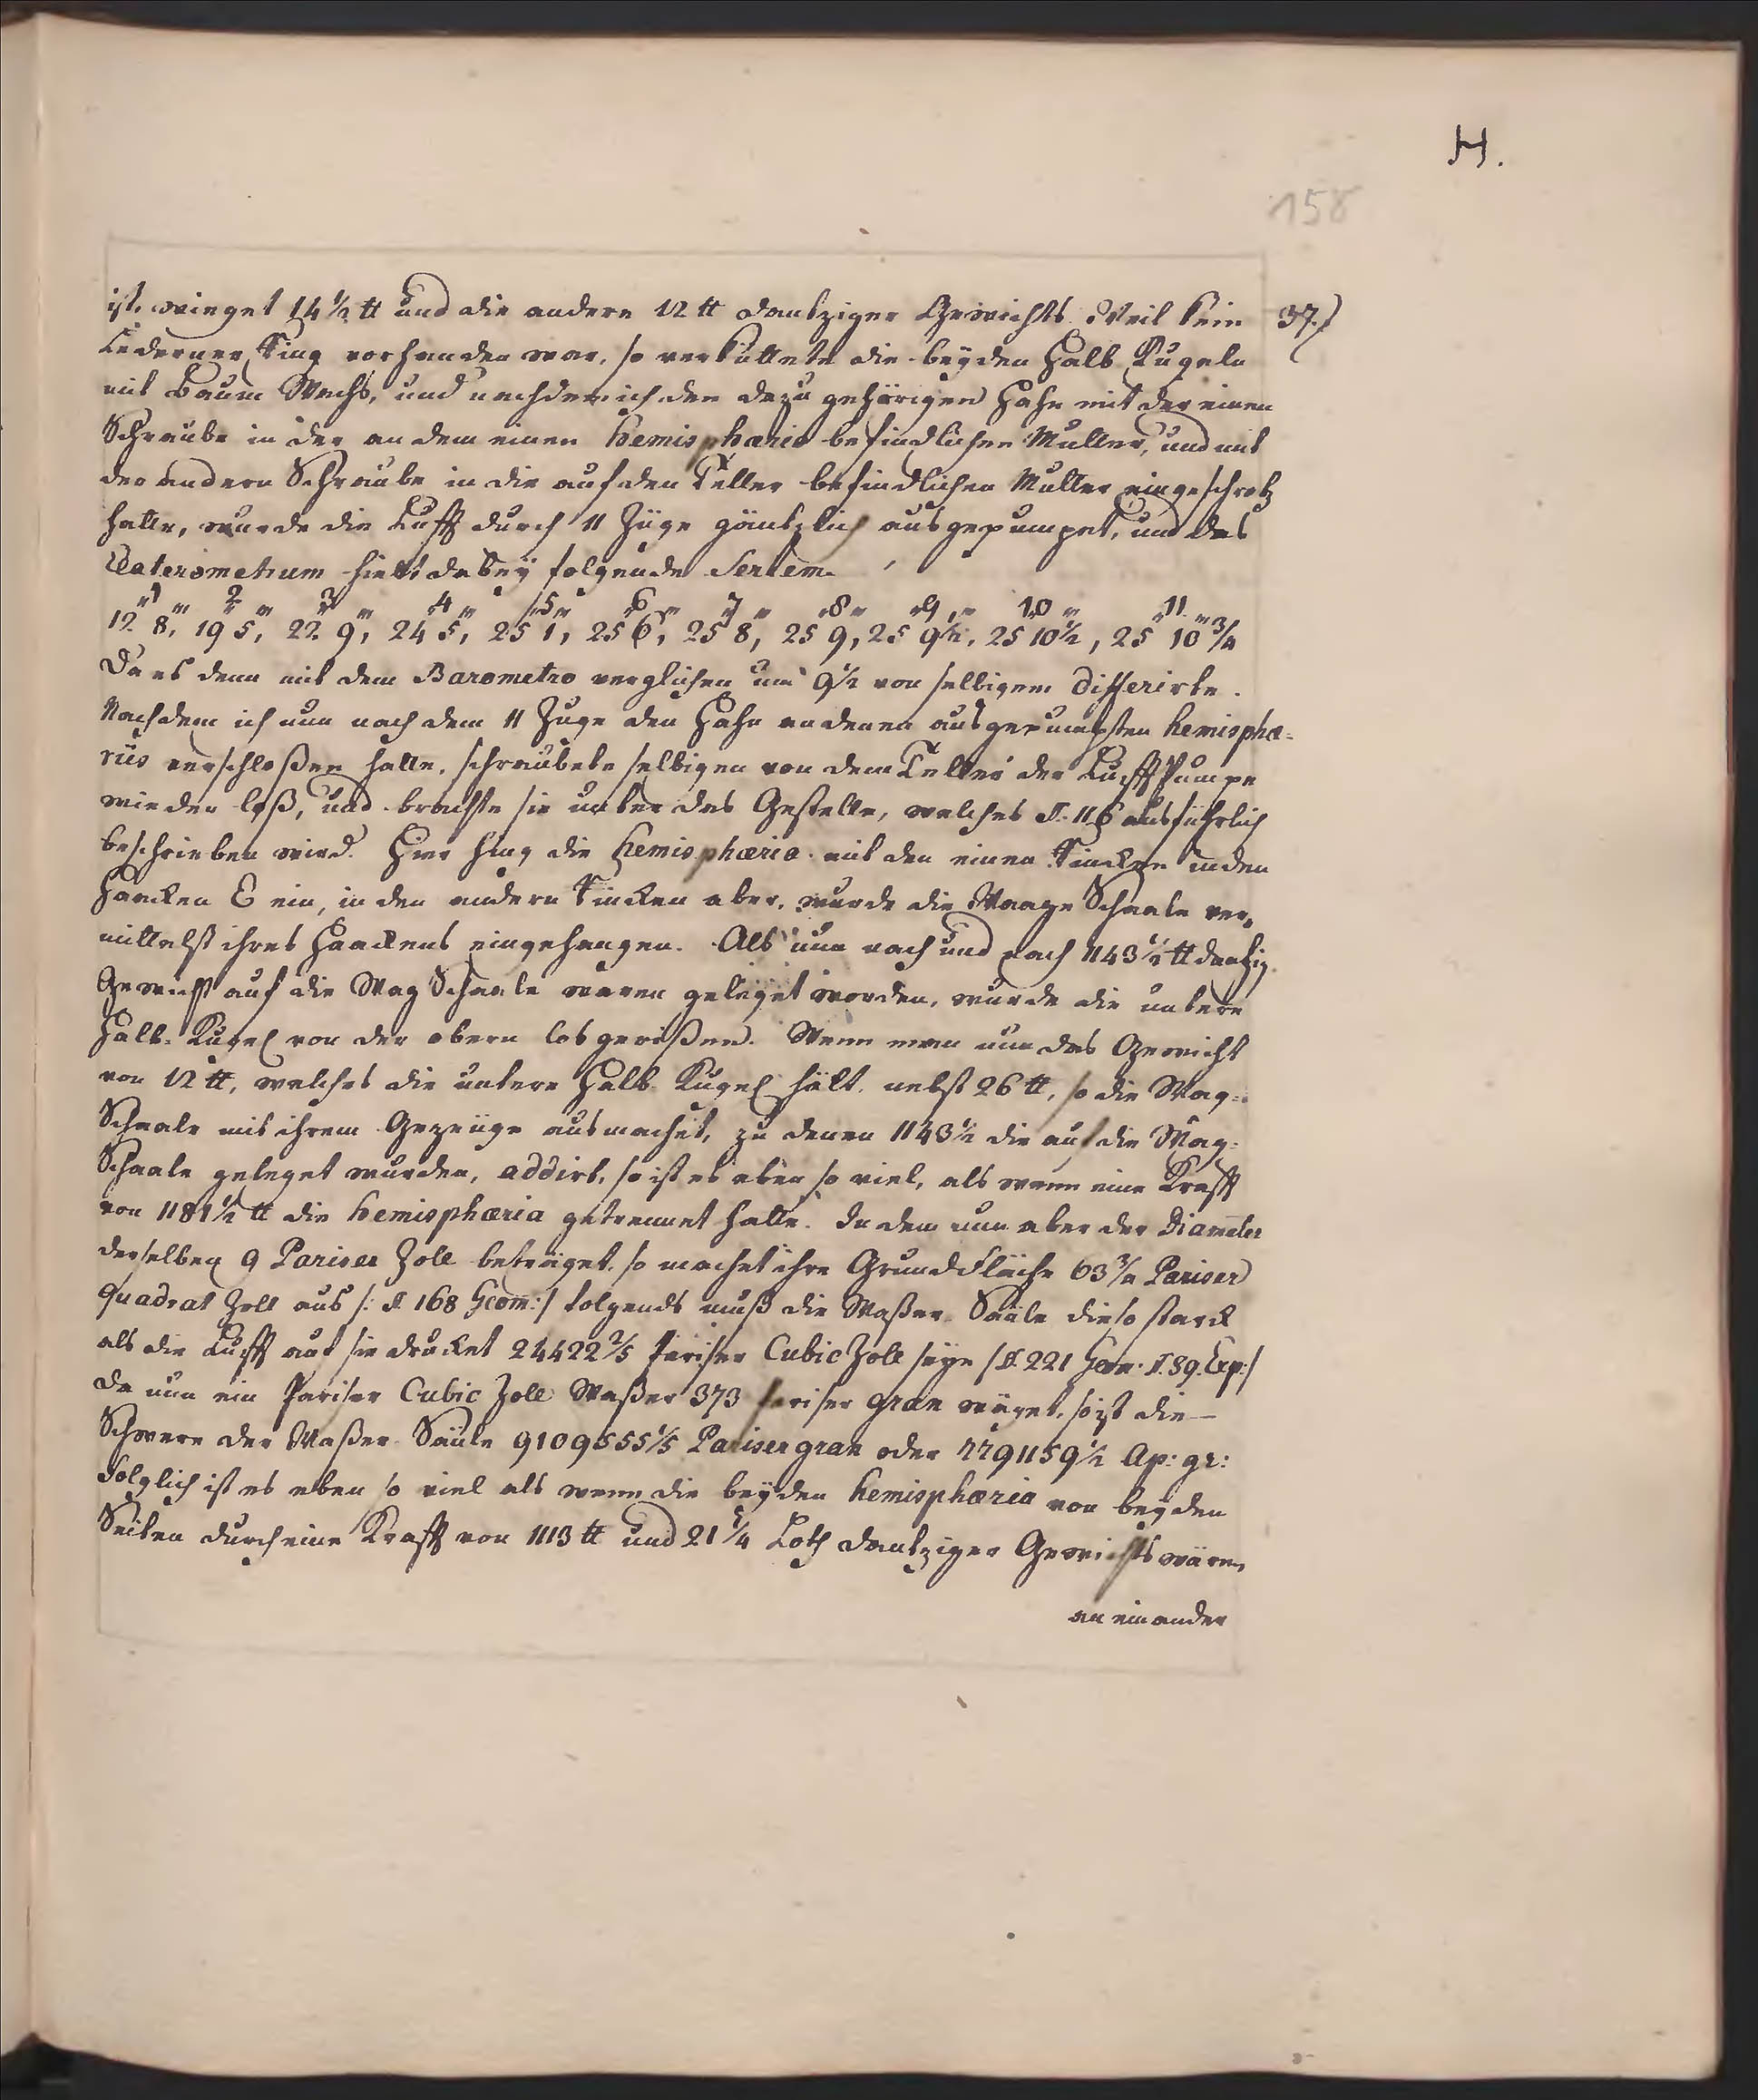 H.
158
ist, wieget 14 1/2 ℔ und die andere 12 ℔ dantziger Gewichts. Weil kein 37.)
Lederner Ring vorhanden war, so verküttete die beyden Halb Kugeln
mit Baum Wachs, und nachdem ich den dazu gehörigen Hahn mit der einen
Schraube in der an dem einen hemisphærio befindlichen Mutter, und mit
der andern Schraube in die auf den Teller befindlichen Mutter eingeschrobt
hatte, wurde die Lufft durch 11 Züge gäntzlich ausgepumpet, und das
Elaterometrum hielt dabey folgende Seriem.
1 2 3 4 5 6 7 8 9 10 11
12" 8"', 19" 5"', 22" 9"', 24" 5"', 25" 1"', 25" 6"', 25" 8"', 25" 9"', 25" 9 1/2"', 25" 10 1/2"', 25" 10 3/4"'
Da es denn mit dem Barometro verglichen um 9 1/2 von selbigem differirte.
Nachdem ich nun nach dem 11 Zuge den Hahn an denen ausgepumpten hemisphæ-
riis verschloßen hatte, schraubete selbigen von dem Teller der Lufft Pumpe
wieder loß, und brachte sie unter das Gestelle, welches §. 116 ausführlich
beschrieben wird. Hier hing die hemisphæria mit den einen Rincken in den
Haacken E ein, in den andern Rincken aber, wurde die Waage Schaale ver-
mittelst ihres Haackens eingehangen. Als nun nach und nach 1143 1/2 ℔ dantzig.
Gewicht auf die Wag Schaale waren geleget worden, wurde die untere
Halb-Kugel von der obern los gerißen. Wenn man nun das Gewicht
von 12 ℔, welches die untere Halb Kugel hält, nebst 26 ℔, so die Wag-
Schaale mit ihrem Gezeuge ausmachet, zu denen 1143 1/2 die auf die Wag-
Schaale geleget wurden, addirt, so ist es eben so viel, als wenn eine Krafft
von 1181 1/2 ℔ die hemisphæria getrennet hatte. In dem nun aber der Diameter
derselben 9 Pariser Zoll beträget, so machet ihre Grundfläche 63 3/4 Pariser
quadrat Zoll aus /: §. 168 Geom:/ folgends muß die Waßer Säule die so starck
als die Lufft auf sie drucket 24422 2/5 Pariser Cubic Zoll seyn /§. 221 Geom. §. 89. Exp:/
da nun ein Pariser Cubic Zoll Waßer 373 pariser gran wäget, so ist die
Schwere der Waßer Säule 9109555 1/5 Pariser gran oder 7791159 1/2 Ap: gr:
folglich ist es eben so viel als wenn die beyden hemisphæria von beyden
Seiten durch eine Krafft von 1113 ℔ und 21 1/4 Loth dantziger Gewichts wären
an einander